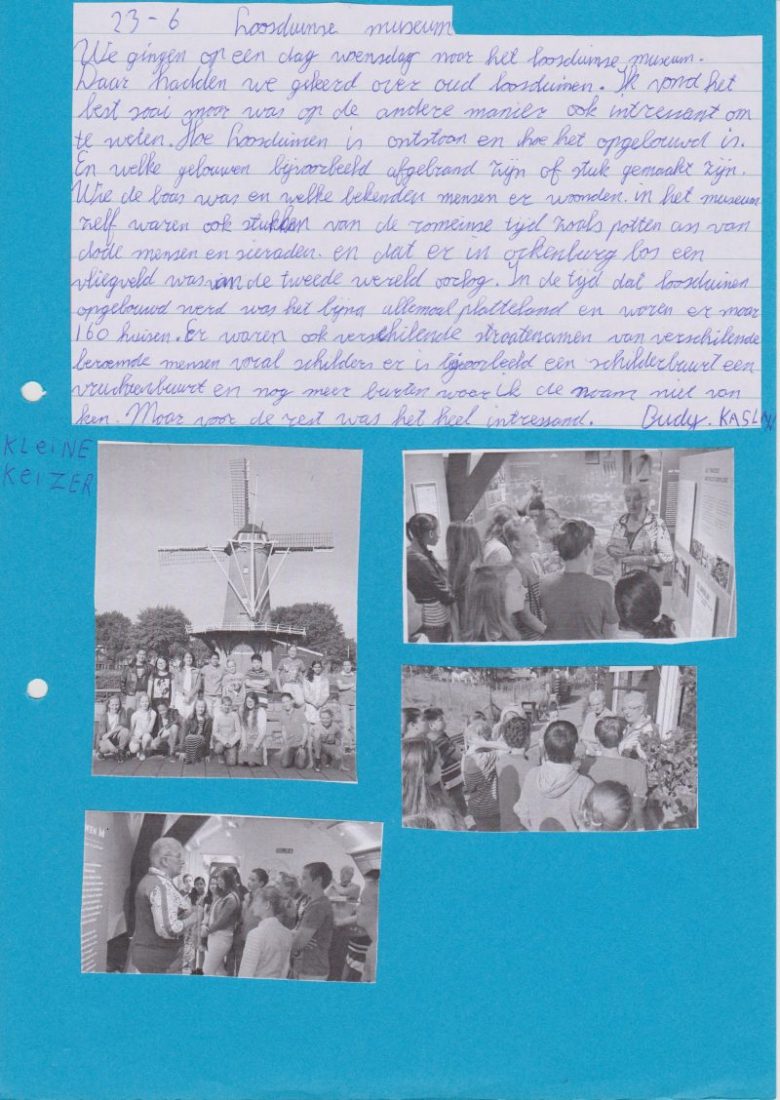 23-6 Loosduinse museum
We gingen op een dag woensdag naar het loosduinse museum.
Daar hadden we geleerd over oud loosduinen. Ik vond het
best saai maar was op de andere manier ook intressant om
te weten. Hoe Loosduinen is ontstaan en hoe het opgebouwd is.
En welke gebouwen bijvoorbeeld afgebrand zijn of stuk gemaakt zijn.
Wie de baas was en welke bekenden mensen er woonden. in het museum
zelf waren ook stukken van de romeinse tijd zoals potten ass van
dode mensen en sieraden. en dat er in ockenburg bos een
vliegveld was van de tweede wereld oorlog. In de tijd dat loosduinen
opgebouwd werd was het bijna allemaal platteland en waren er maar
160 huisen. Er waren ook verschilende straatenamen van verschilende
beroemde mensen voral schilders er is bijvoorbeeld een schilderbuurt een
vruchtenbuurt en nog meer burten waar ik de naam niet van
ken. Maar voor de rest was het heel intressand. Budy. KASLA
KLEINE
KEIZER